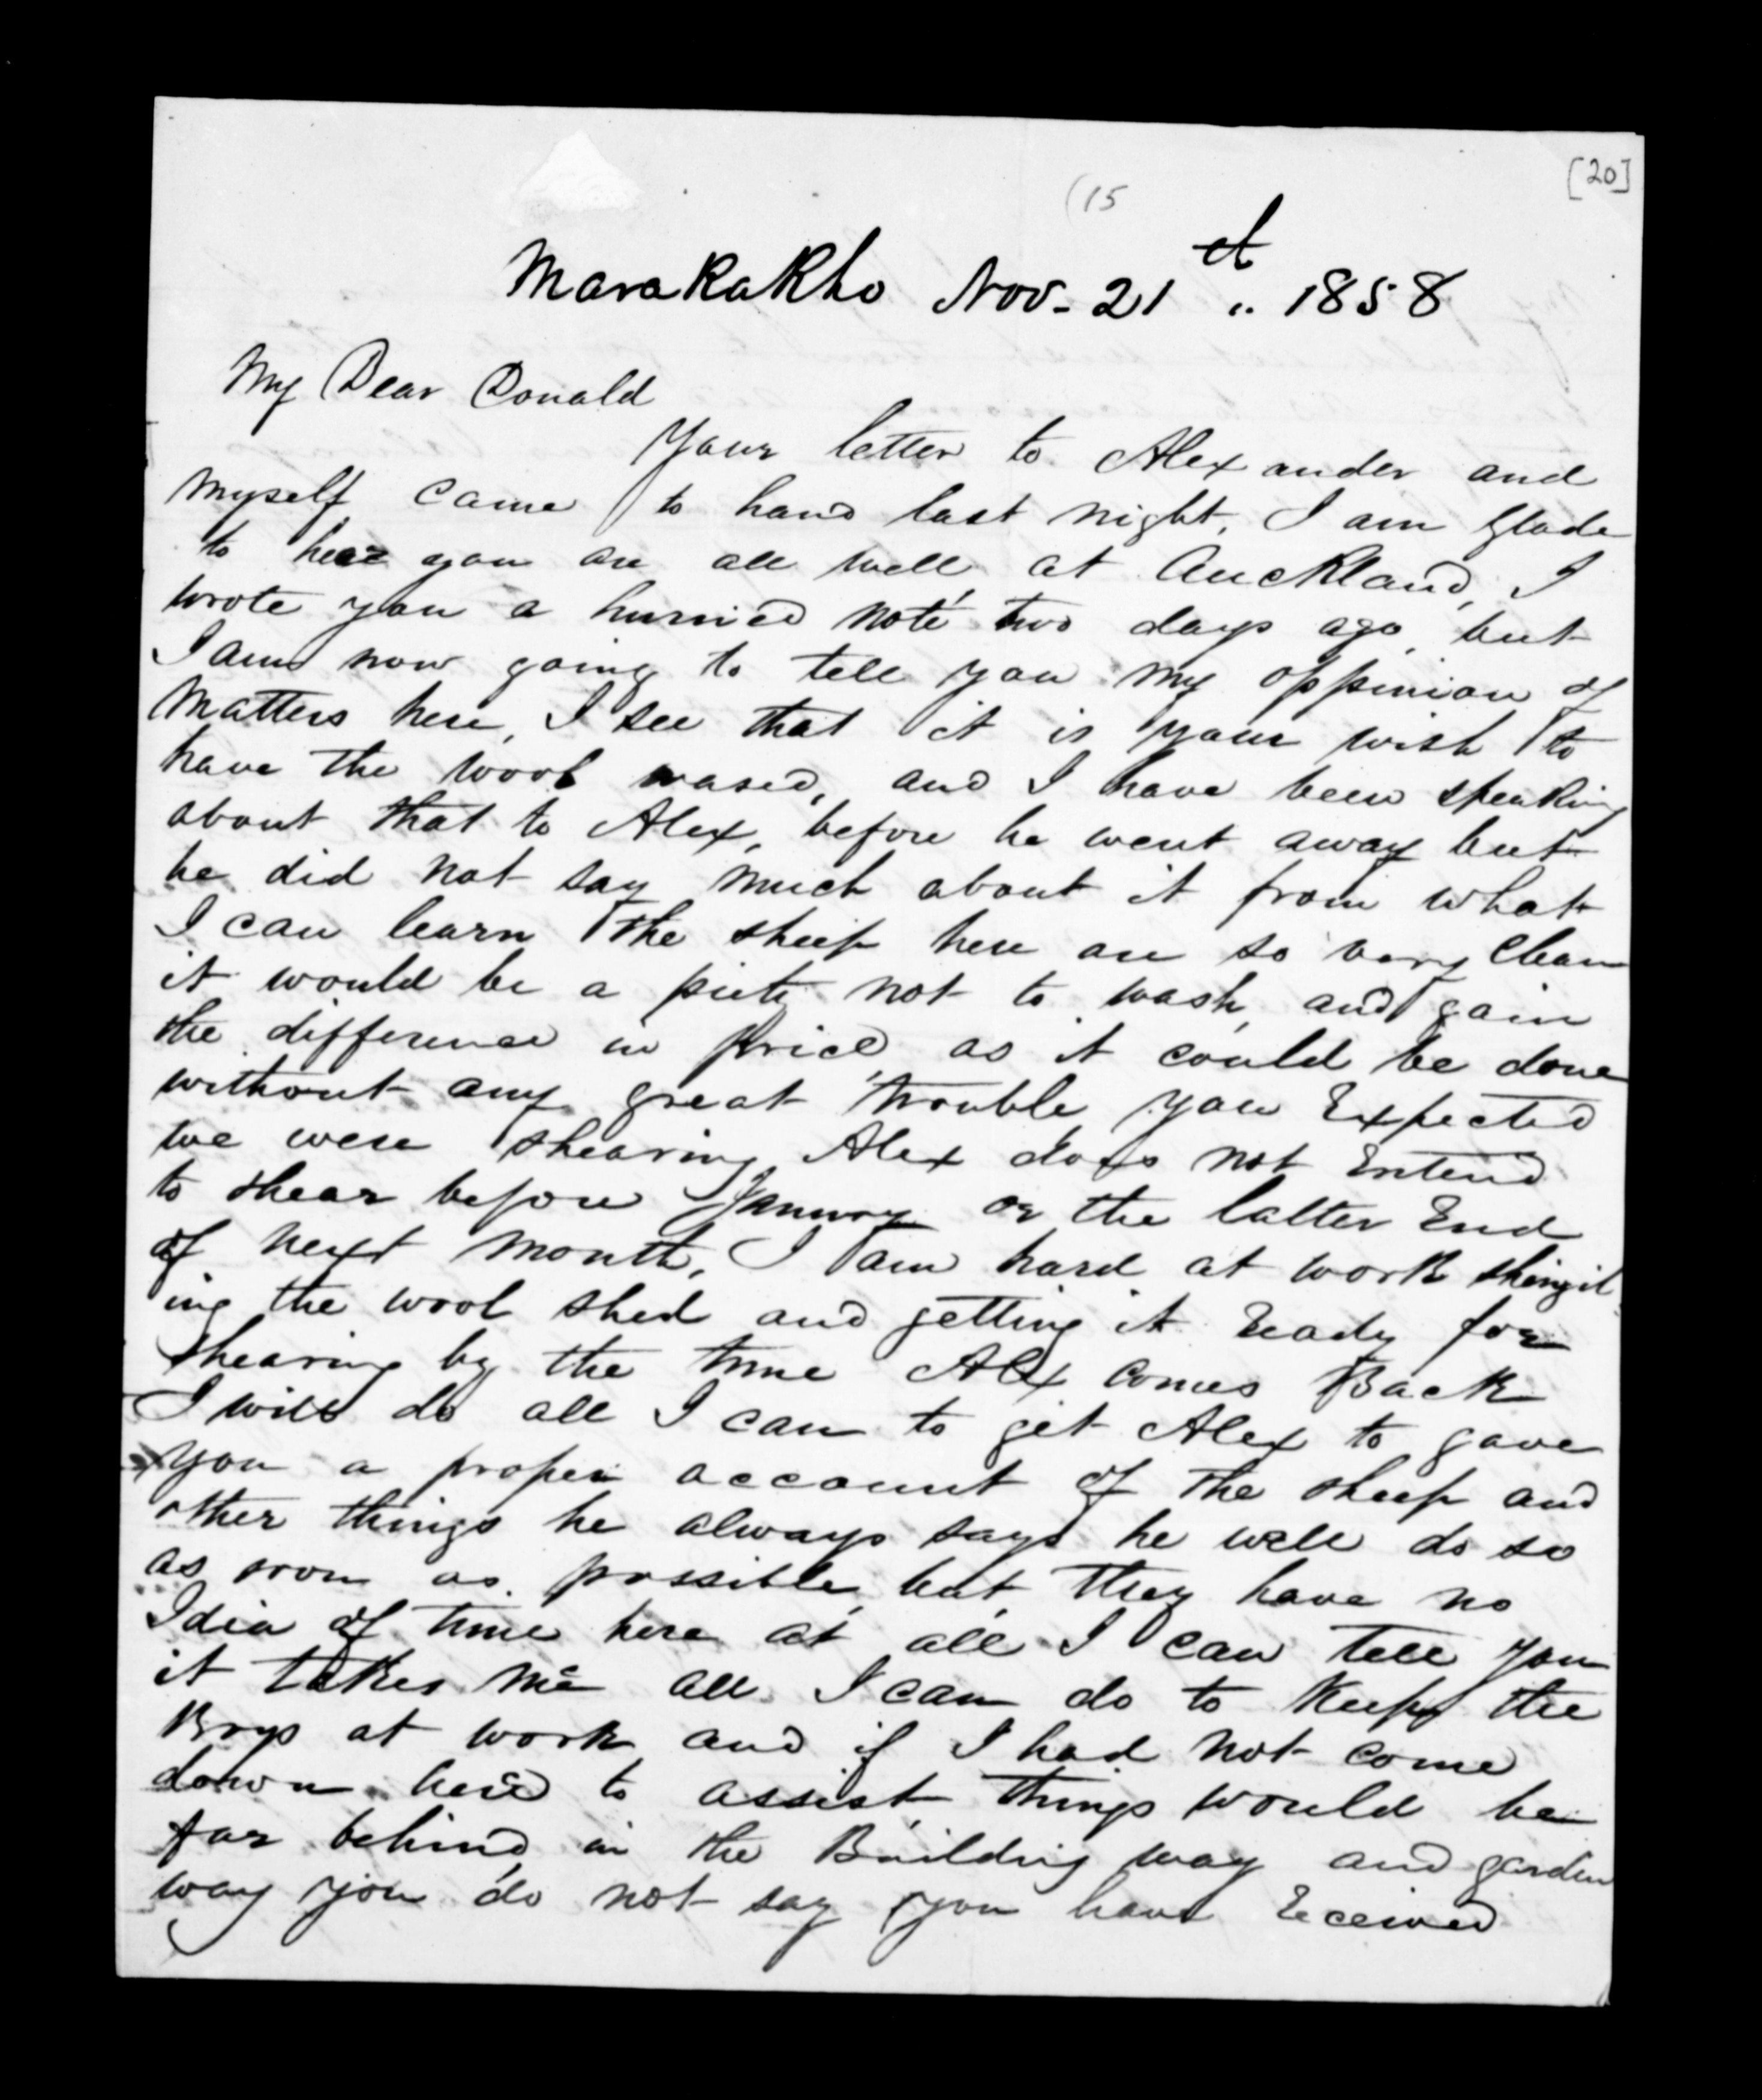 [20]
(15
MaraKaKho Nov- 21st 1858
My Dear Donald
Your letter to Alexander and
myself came to hand last night, I am Glade
to hear you are all well, at AucKland, I
wrote you a hurried note two days ago, but
I am now going to tell you my oppinion of
Matters here, I see that it is your wish to
have the wool wased, and I have been speaking
about that to Alex, before he went away but
he did not say much about it from what
I can learn the sheep here are so very Clean
it would be a piety not to wash, and gain
the difference in price, as it could be done
without any great trouble, you Expected
we were shearing Alex does not Entend
to shear before Januray or the latter End
of next month, I am hard at work shingil
ing the wool shed and getting it Ready for
shearing by the time Alex comes Back
I will do all I can to get Alex to gave
you a proper account of the sheep and
other things he always says he will do so
as soon as possible, but, they have no
Idia of time here at all I can tell you
it takes me all I can do to Keep the
Boys at work, and if I had not come
down here to assist, things would be
far behind in the Building way and garden
way you do not say you have Received